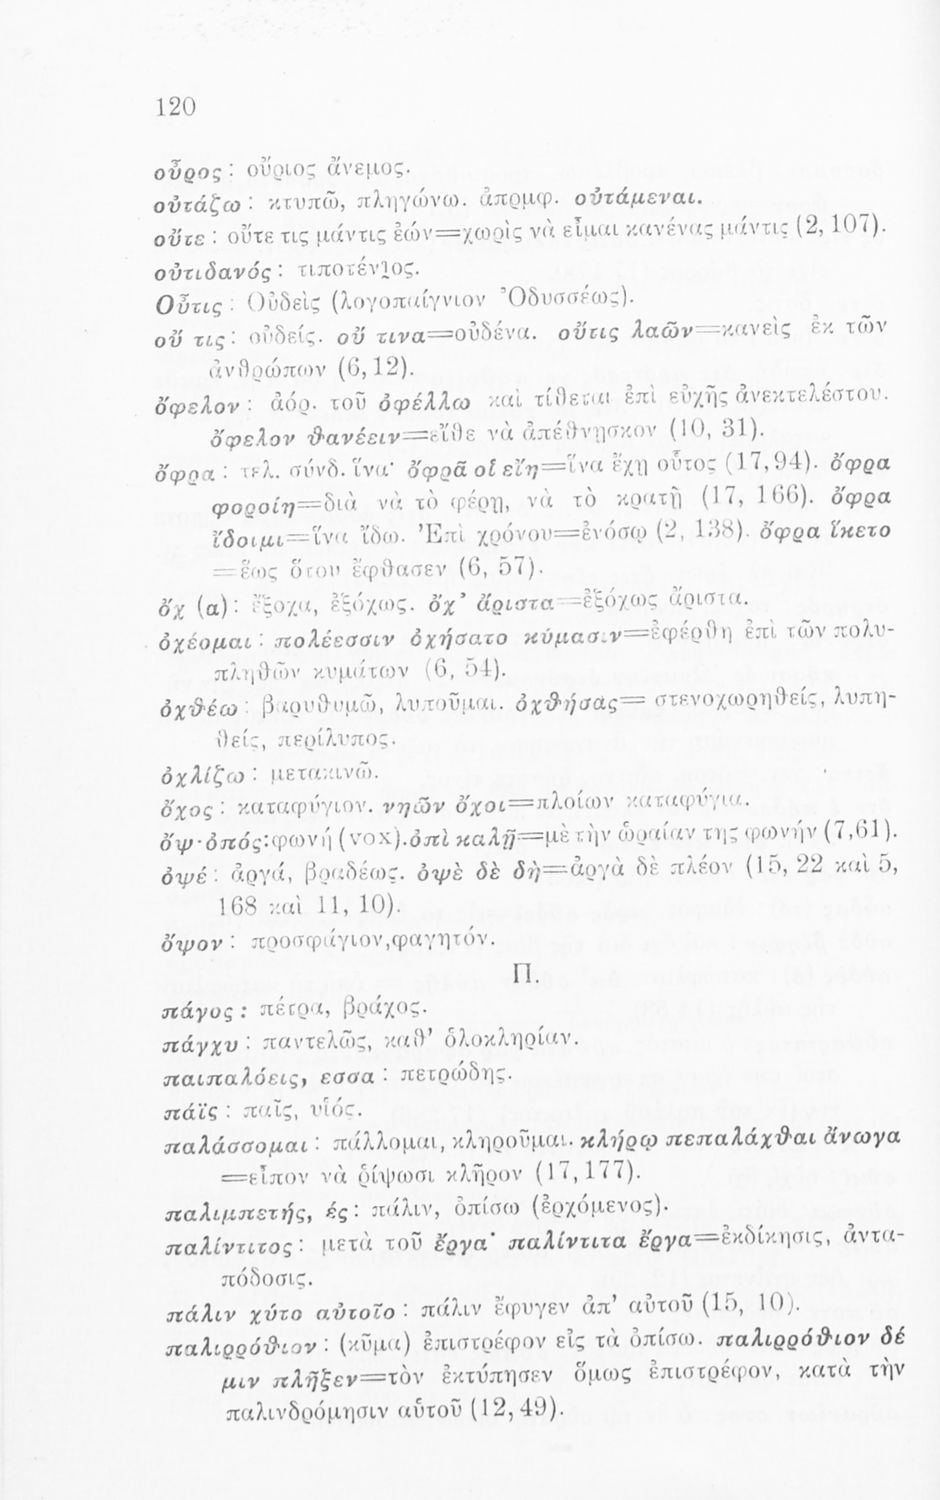 120
οὖρος : οὔριος ἄνεμος.
οὐτάζω : κτυπῶ, πληγώνω. ἀπρμφ. οὐτάμεναι.
οὔτε : οὔτε τις μάντις ἐών=χωρὶς νὰ εἶμαι κανένας μάντις (2, 107).
οὐτιδανός : τιποτένιος.
Οὖτις : Οὐδεὶς (λογοπαίγνιον Ὀδυσσέως).
οὔ τις : οὐδείς. οὔ τινα=οὐδένα. οὔτις λαῶν=κανεὶς ἐκ τῶν
ἀνθρώπων (6,12).
ὄφελον : ἀόρ. τοῦ ὀφέλλω καὶ τίθεται ἐπὶ εὐχῆς ἀνεκτελέστου.
ὄφελον θανέειν=εἴθε νὰ ἀπέθνησκον (10, 31).
ὄφρα : τελ. σύνδ. ἵνα· ὄφρᾶ οἱ εἴη=ἵνα ἔχῃ οὗτος (17,94). ὄφρα
φοροίη=διὰ νὰ τὸ φέρῃ, νὰ τὸ κρατῇ (17, 166). ὄφρα
ἴδοιμι=ἵνα ἴδω. Ἐπὶ χρόνου=ἐνόσῳ (2, 138). ὄφρα ἵκετο
=ἕως ὅτου ἔφθασεν (6, 57).
ὄχ (α) : ἔξοχα, ἐξόχως. ὄχ’ ἄριστα=ἐξόχως ἄριστα.
ὀχέομαι : πολέεσσιν ὀχήσατο κύμασιν=ἐφέρθη ἐπὶ τῶν πολυ-
πληθῶν κυμάτων (6, 54).
ὀχθέω : βαρυθυμῶ, λυποῦμαι. ὀχθήσας= στενοχωρηθείς, λυπη-
θείς, περίλυπος.
ὀχλίζω : μετακινῶ.
ὄχος : καταφύγιον. νηῶν ὄχοι=πλοίων καταφύγια.
ὄψ·ὀπός:φωνή (vox).ὀπὶ καλῇ=μὲ τὴν ὡραίαν της φωνήν (7,61).
ὀψέ : ἀργά, βραδέως. ὀψὲ δὲ δὴ=ἀργὰ δὲ πλέον (15, 22 καὶ 5,
168 καὶ 11, 10).
ὄψον : προσφάγιον,φαγητόν.
Π.
πάγος : πέτρα, βράχος.
πάγχυ : παντελῶς, καθ’ ὁλοκληρίαν.
παιπαλόεις, εσσα : πετρώδης.
πάϊς : παῖς, υἱός.
παλάσσομαι : πάλλομαι, κληροῦμαι. κλήρῳ πεπαλάχθαι ἄνωγα
=εἶπον νὰ ῥίψωσι κλῆρον (17,177).
παλιμπετής, ές : πάλιν, ὀπίσω (ἐρχόμενος).
παλίντιτος : μετὰ τοῦ ἔργα· παλίντιτα ἔργα=ἐκδίκησις, ἀντα-
πόδοσις.
πάλιν χύτο αὐτοῖο : πάλιν ἔφυγεν ἀπ’ αὐτοῦ (15, 10).
παλιρρόθιον : (κῦμα) ἐπιστρέφον εἰς τὰ ὀπίσω. παλιρρόθιον δέ
μιν πλῆξεν=τὸν ἐκτύπησεν ὅμως ἐπιστρέφον, κατὰ τὴν
παλινδρόμησιν αὐτοῦ (12,49).